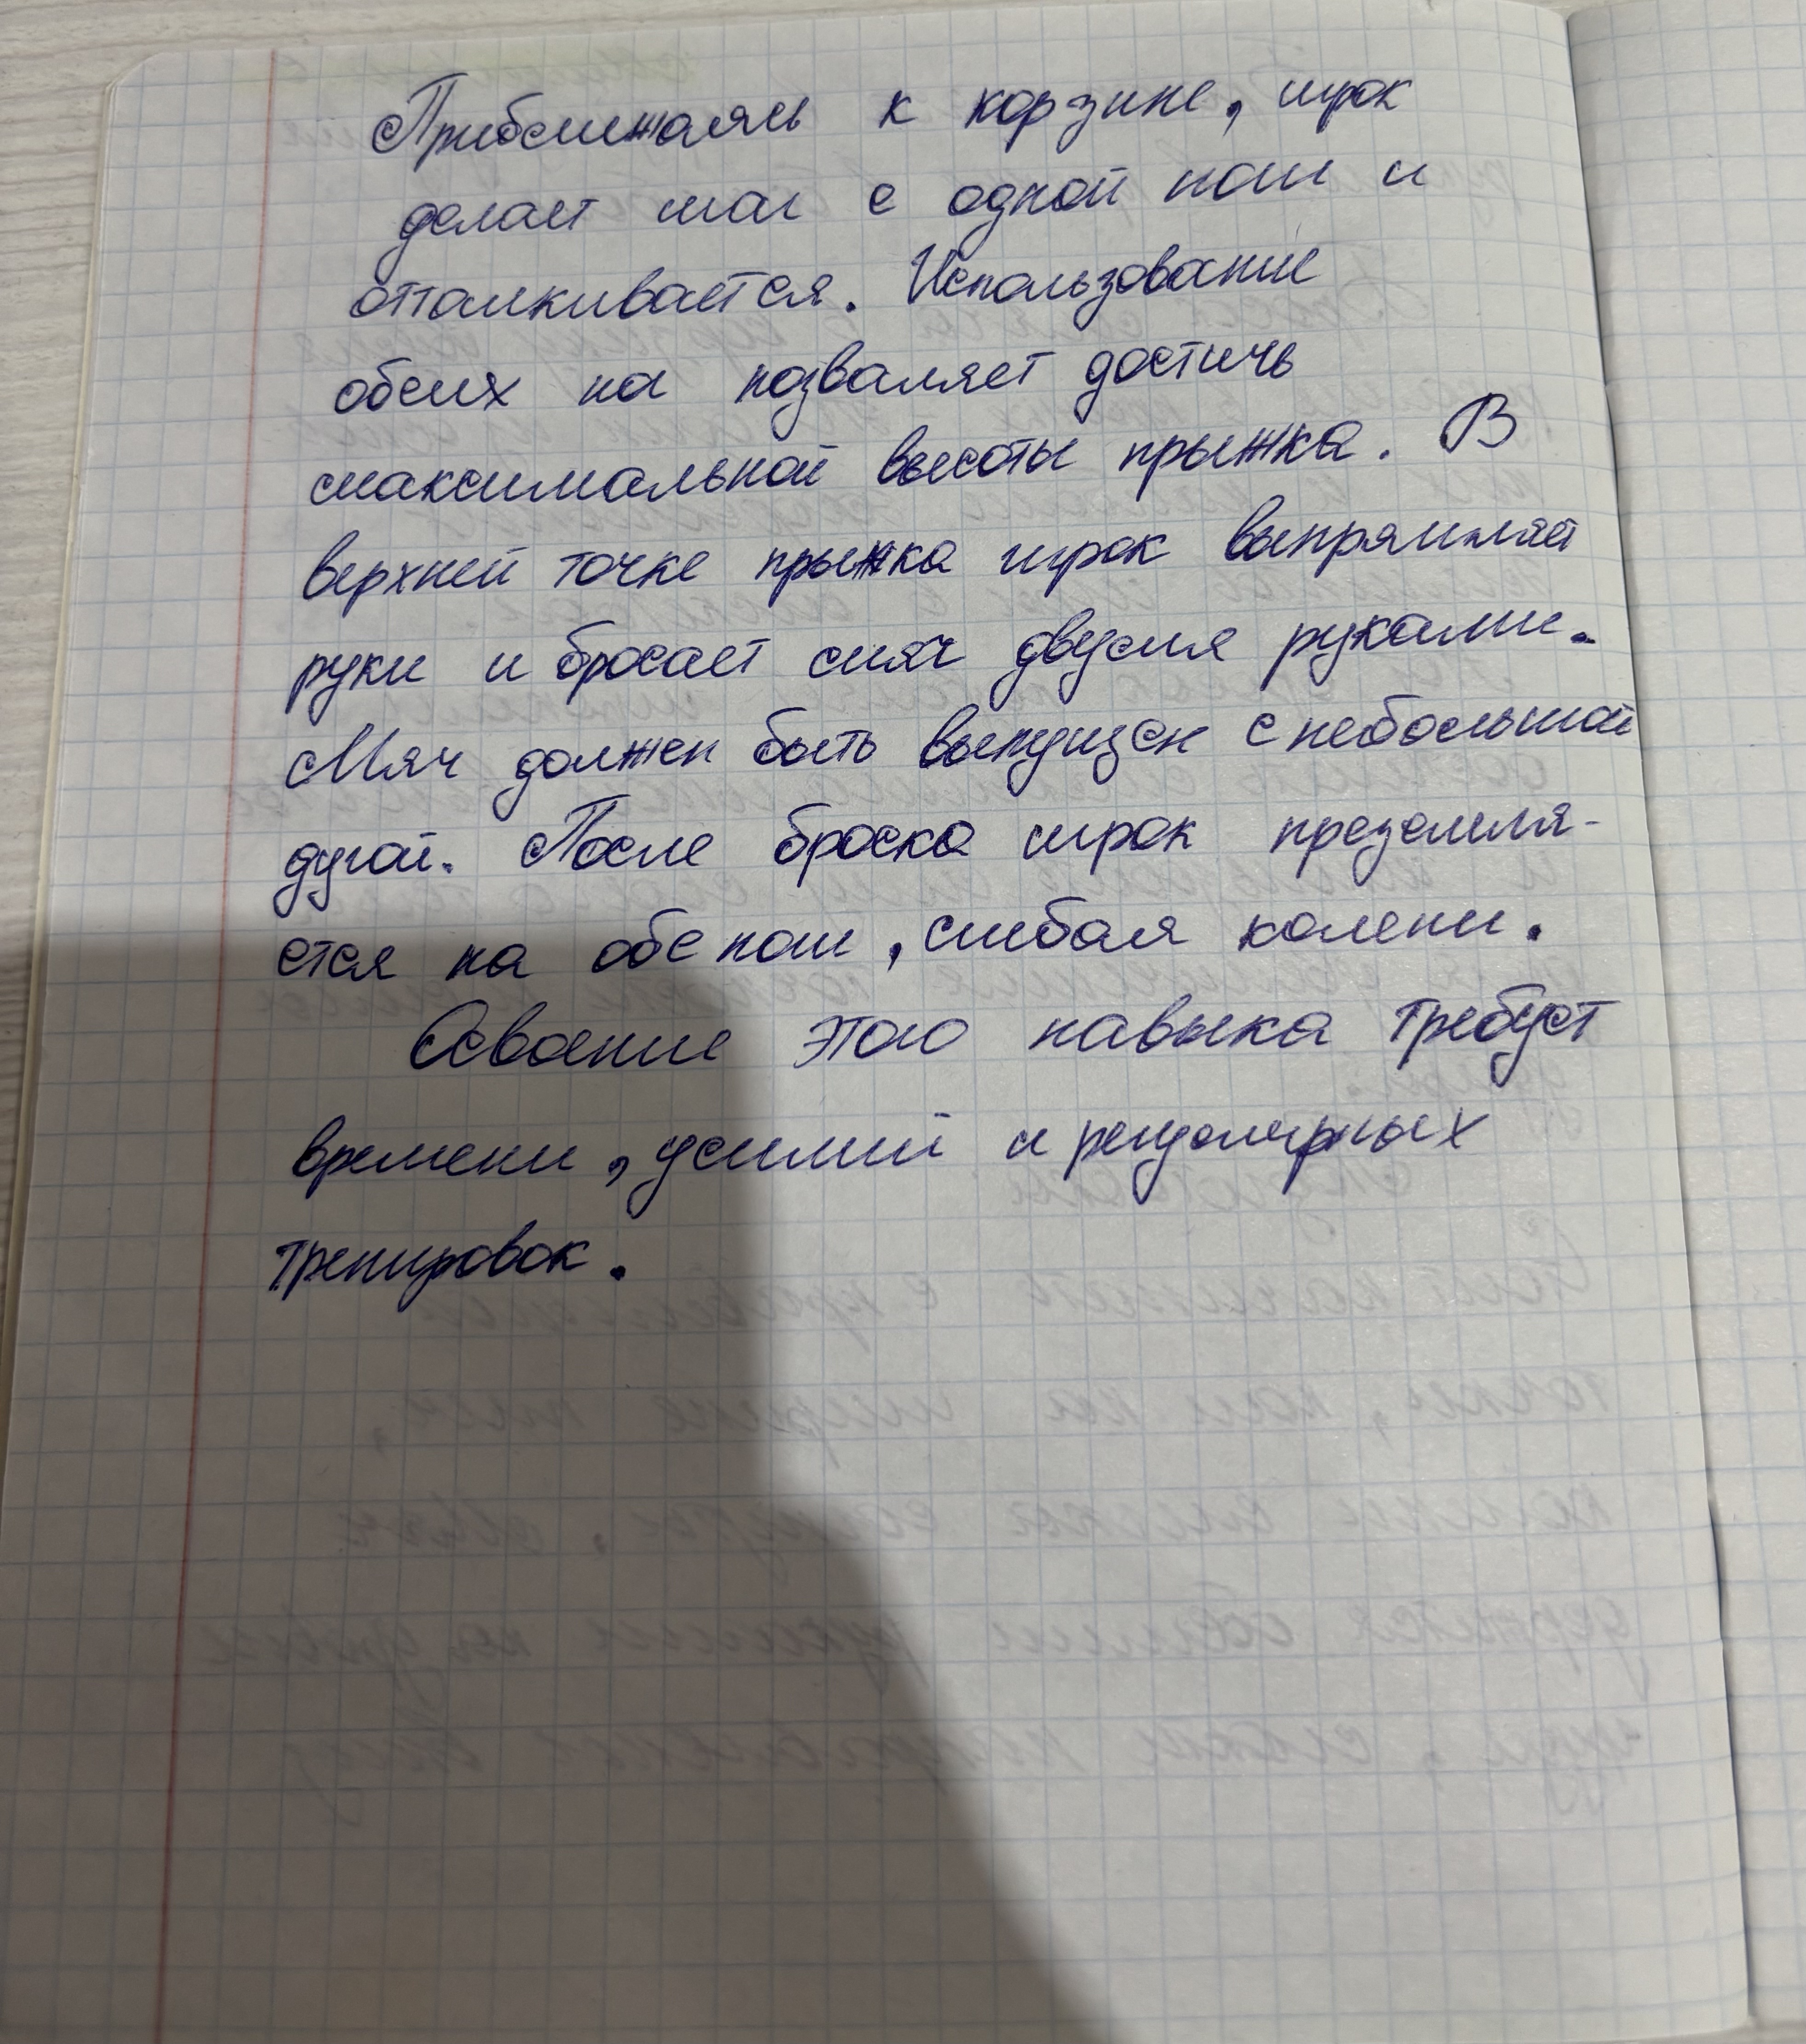 Приближаясь к корзине, игрок
делает шаг с одной ноги и
отталкивается. Использование
обеих на позваляет достичь
максимальной высоты прыжка. В
верхней точке прыжка игрок выпрямляет
руки и бросает мяч двумя руками.
Мяч должен быть выпущен с небольшой
дугой. После броска игрок преземля-
ется на обе ноги, сгибая колени.
Освоение этого навыка требует
времени, усилий и регулярных
тренировок.